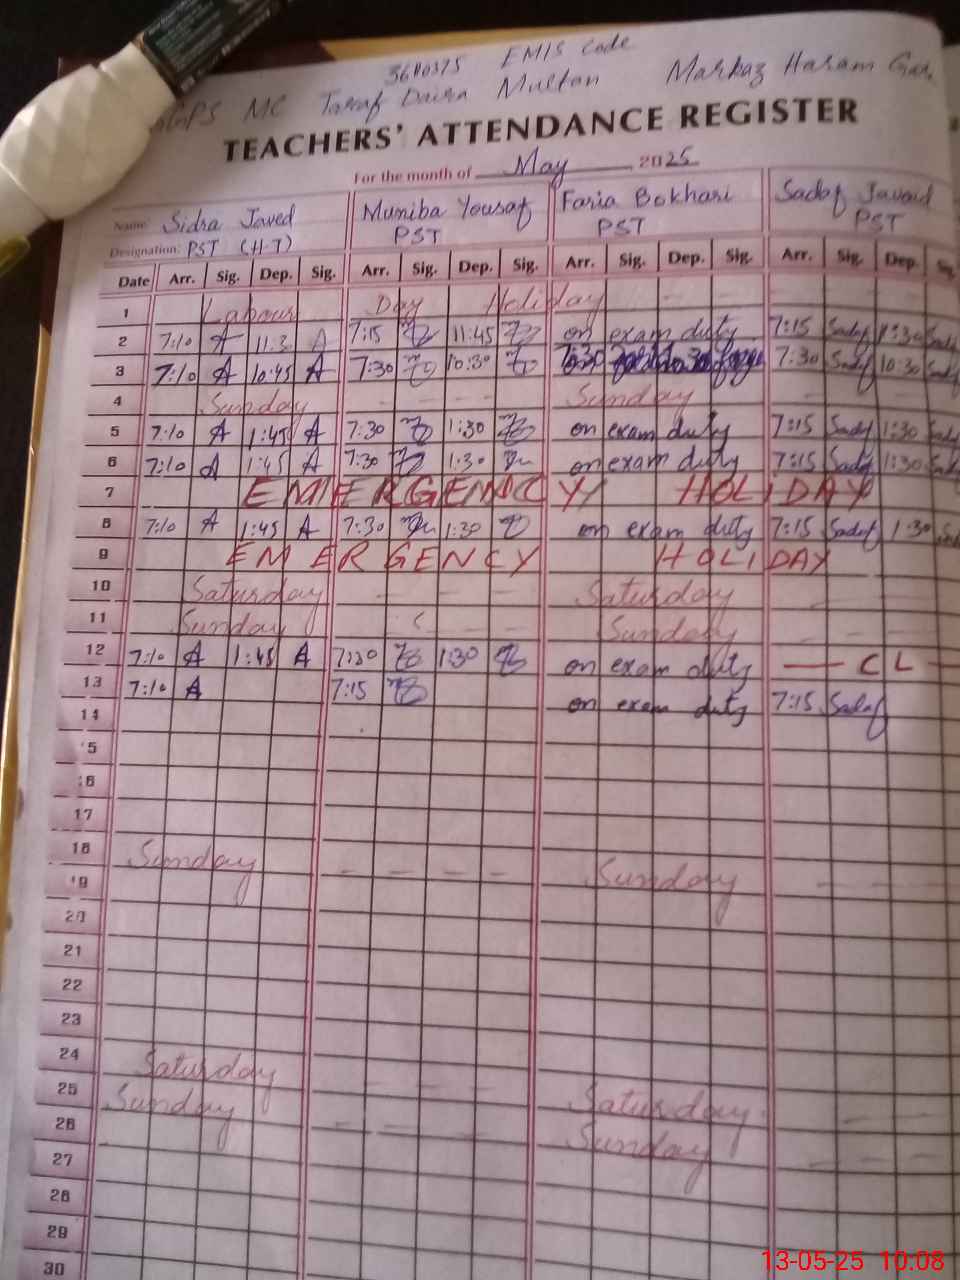 EMIS Code
MC Taraf Daira Multan Markaz Haram Gat
TEACHERS' ATTENDANCE REGISTER
For the month of May 2025
Name: Sidra Javed Muniba Yousaf Faria Bokhari Sadaf Javaid
Designation: PST (H-T) PST PST PST
Date Arr. Sig. Dep. Sig. Arr. Sig. Dep. Sig. Arr. Sig. Dep. Sig. Arr. Sig. Dep. Sig.
1 Labour Day Holiday
2 7:10 A 7:15 11:45 on exam duty 7:15 Sadaf 11:30 Sadaf
3 7:10 A 10:45 A 7:30 10:30 7:30 Sadaf 10:30 Sadaf
4 Sunday - - - - Sunday
5 7:10 A 1:45 A 7:30 1:30 on exam duty 7:15 Sadaf 1:30 Sadaf
6 7:10 A 1:45 A 7:30 1:30 on exam duty 7:15 Sadaf 1:30 Sadaf
7 EMERGENCY HOLIDAY
8 7:10 A 1:45 A 7:30 1:30 on exam duty 7:15 Sadaf 1:30
9 EMERGENCY HOLIDAY
10 Saturday - - - - Saturday
11 Sunday Sunday
12 7:10 A 1:45 A 7:30 1:30 on exam duty — CL —
13 7:10 A 7:15 on exam duty 7:15 Sadaf
14
15
16
17
18 Sunday - - - - Sunday
19
20
21
22
23
24 Saturday Saturday
25 Sunday - - - - Sunday
26
27
28
29
30
13-05-25 10.08